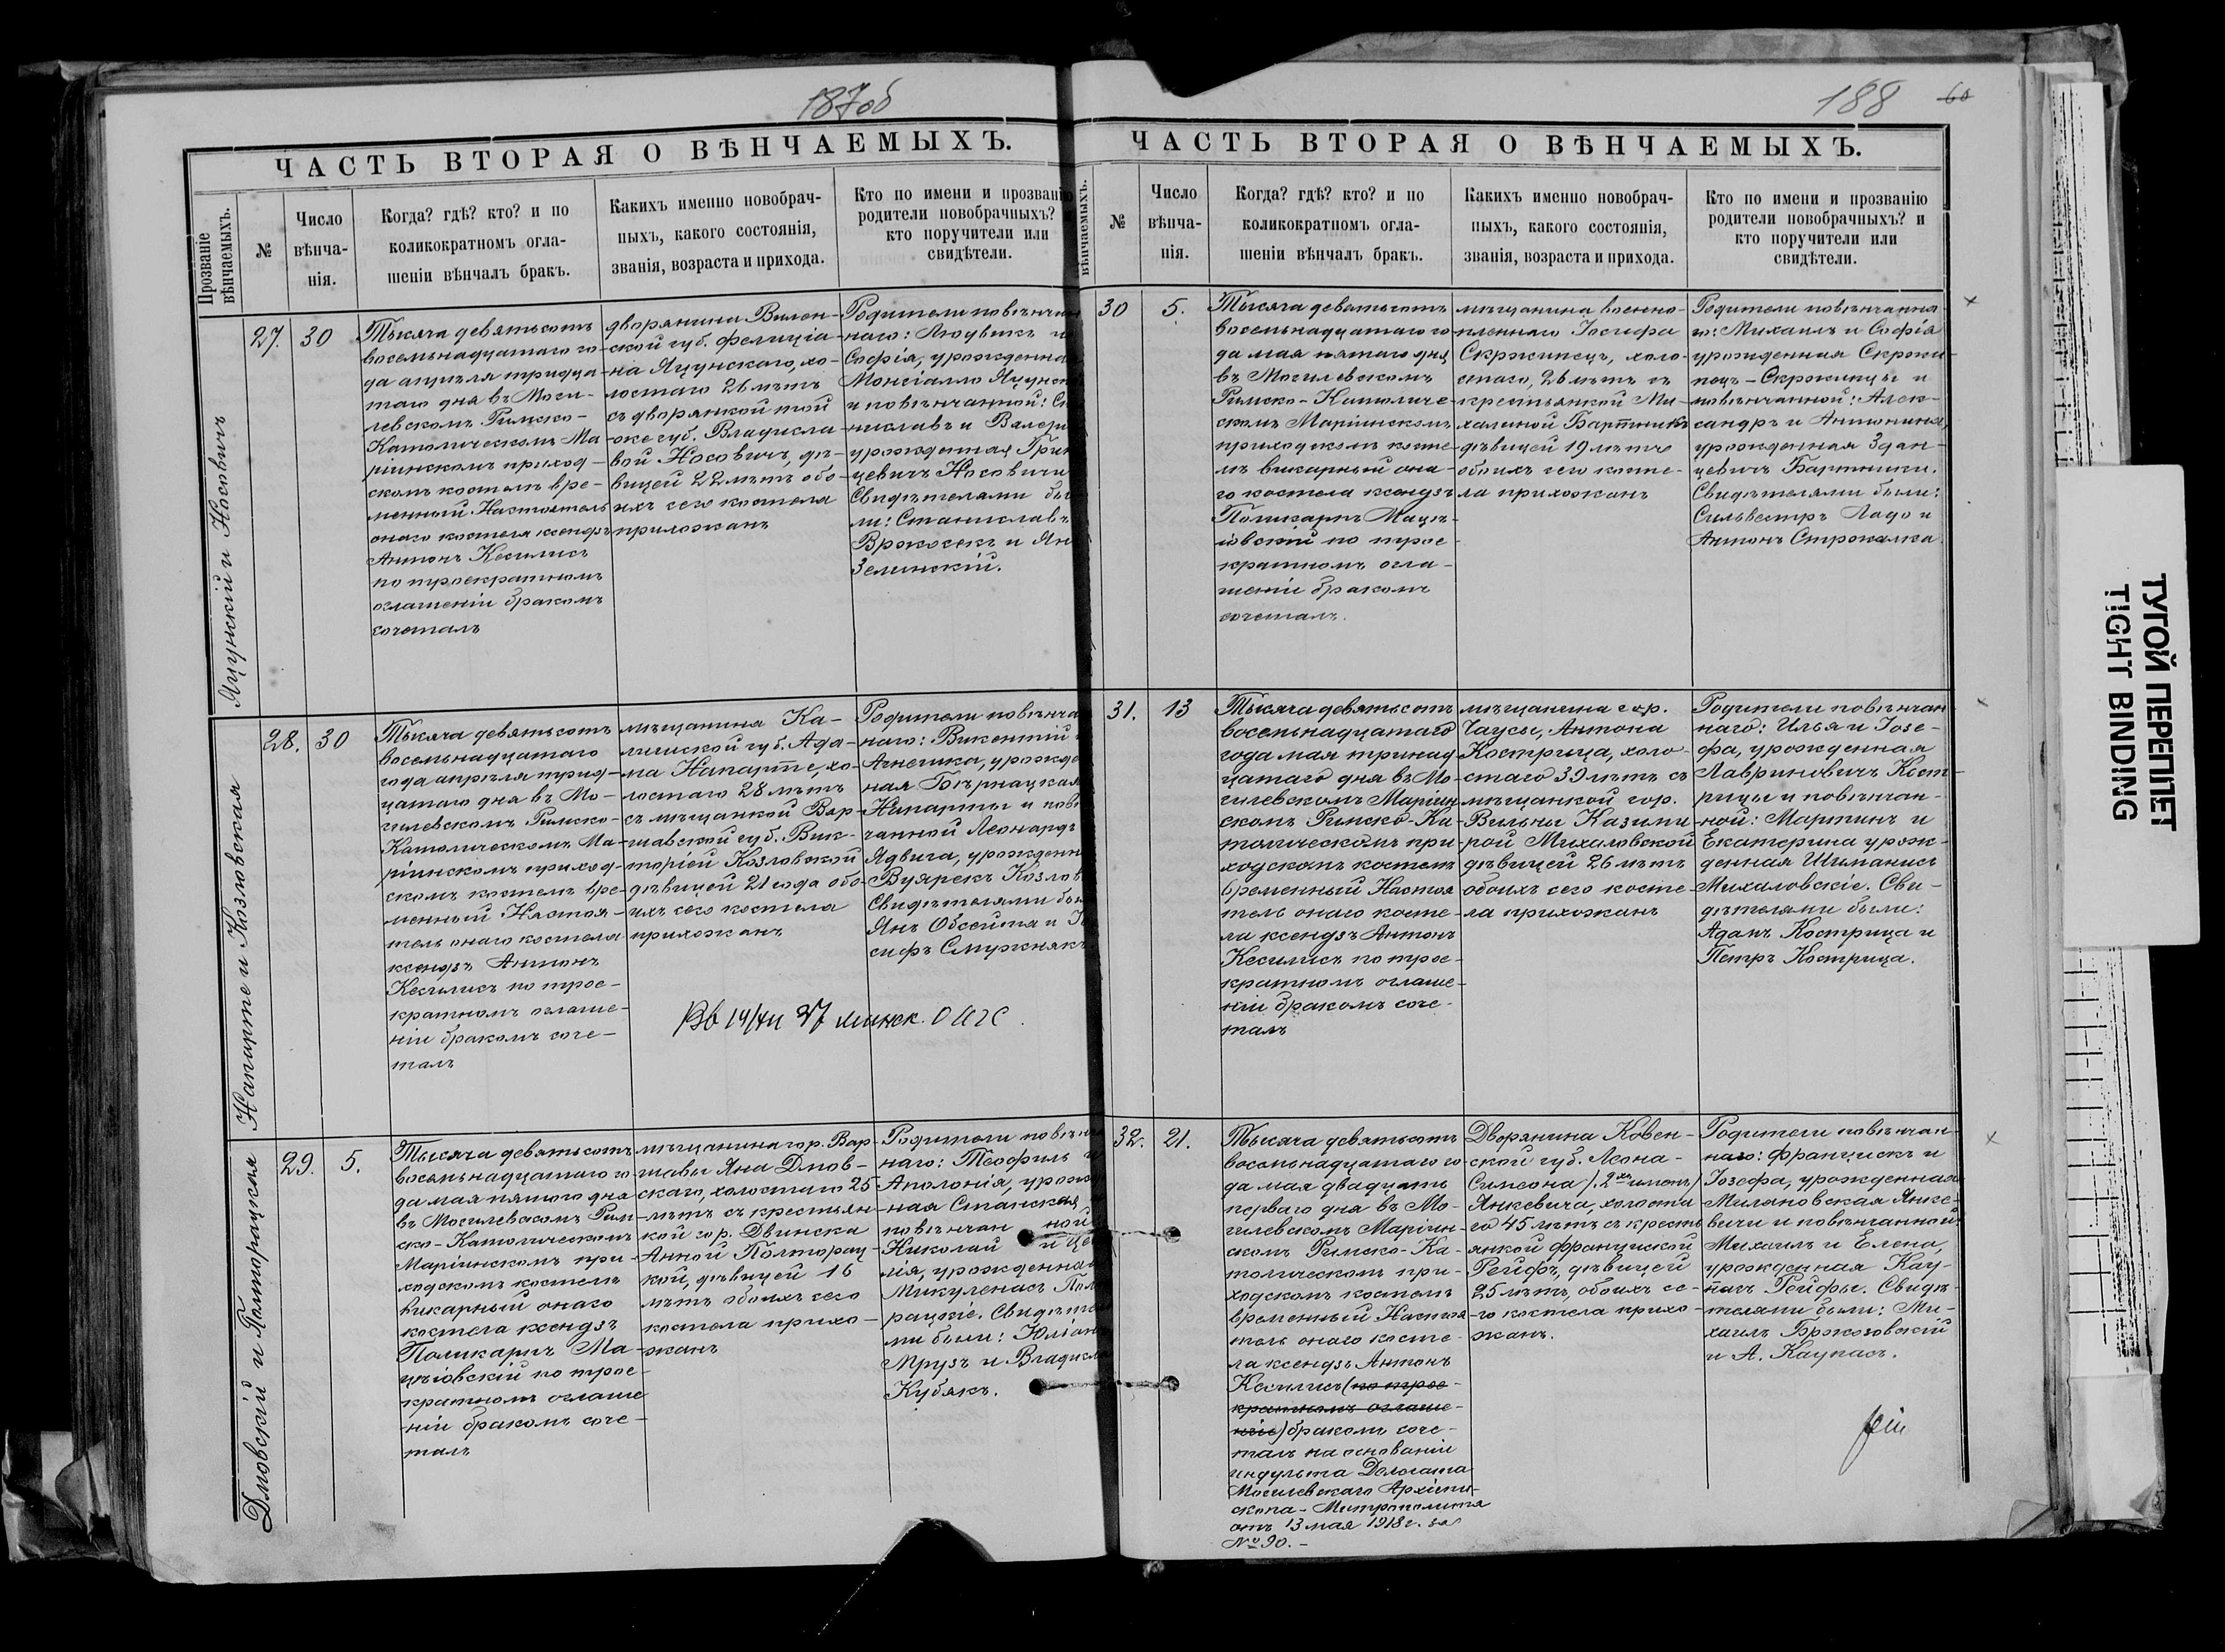 187об
ЧАСТЬ ВТОРАЯ О ВѢНЧАЕМЫХЪ.
Прозваніе
вѣнчаемыхъ.
№
Число
вѣнча-
нія.
Когда? гдѣ? кто? и по
коликократномъ огла-
шеніи вѣнчалъ бракъ.
Какихъ именно новобрач-
ныхъ, какого состоянія,
званія, возраста и прихода.
Кто по имени и прозванію
родители новобрачныхъ?
кто поручители или
свидѣтели.
Яцунскій и Носовичъ
27.
30
Тысяча девятьсотъ
восемьнадцатаго го-
да апрѣля тридца-
таго дня въ Моги-
левскомъ Римско-
Католическомъ Ма-
ріинскомъ приход-
скомъ костелѣ вре-
менный Настоятель
онаго костела ксендзъ
Антонъ Кесилисъ
по троекратномъ
оглашеніи бракомъ
сочеталъ
дворянина Вилен-
ской губ. Фелиціа-
на Яцунскаго, хо-
лостаго 26 лѣтъ
съ дворянкой той
же губ. Владисла-
вой Носовичъ, дѣ-
вицей 22 лѣтъ обо-
ихъ сего костела
прихожанъ
Родители повѣнчан
наго: Людвикъ и
Софія, урожденна
Монсіалло Яцунс
и повѣнчанной: Ст
ниславъ и Валері
урожденная Гри
цевичъ Носовичи
Свидѣтелями бы
ли: Станиславъ
Врокосекъ и Ян
Зелинскій.
Напарте и Козловская
28.
30
Тысяча девятьсотъ
восемьнадцатаго
года апрѣля трид-
цатаго дня въ Мо-
гилевскомъ Римско-
Католическомъ Ма-
ріинскомъ приход-
скомъ костелѣ вре-
менный Настоя-
тель онаго костела
ксендзъ Антонъ
Кесилисъ по трое-
кратномъ оглаше-
ніи бракомъ соче-
талъ
мѣщанина Ка-
лишской губ. Ада-
ма Напарте, хо-
лостаго 28 лѣтъ
съ мѣщанкой Вар-
шавской губ. Вик-
торіей Козловской
дѣвицей 21 года обо-
ихъ сего костела
прихожанъ
Родители повѣнча
наго: Викентій
Агнешка, урожде
ная Бѣрнацкая
Напарты и повѣ
чанной Леонардъ
Ядвига, урожденн
Вуярекъ Козлов
Свидѣтелями бы
Янъ Обсейта и
сифъ Смужнякъ
14/III 37 минск. ОАГС
Дловскій и Полторацкая
29.
5.
Тысяча девятьсотъ
восемьнадцатаго го-
да мая пятого дня
въ Могилевскомъ Рим-
ско-Католическомъ
Маріинскомъ при-
ходскомъ костелѣ
викарный онаго
костела ксендзъ
Поликарпъ Ма-
цѣіовскій по трое-
кратномъ оглаше
ніи бракомъ соче-
талъ
мѣщанина гор. Вар-
шавы Яна Дмов-
скаго, холостаго 25
лѣтъ съ крестьян-
кой гор. Двинска
Анной Полторац-
кой, дѣвицей 16
лѣтъ обоихъ сего
костела прихо-
жанъ
Родители повѣнч
наго: Теофилъ и
Аполонія, урожд
ная Станская
повѣнчан ной
Николай и Це
лія, урожденна
Микуленасъ Пол
рацкіе. Свидѣте
ми были: Юліан
Мрузъ и Владисл
Кубякъ.
188
60
ЧАСТЬ ВТОРАЯ О ВѢНЧАЕМЫХЪ.
вѣнчаемыхъ.
№
Число
вѣнча-
нія.
Когда? гдѣ? кто? и по
коликократномъ огла-
шеніи вѣнчалъ бракъ.
Какихъ именно новобрач-
ныхъ, какого состоянія,
званія, возраста и прихода.
Кто по имени и прозванію
родители новобрачныхъ? и
кто поручители или
свидѣтели.
30
5.
Тысяча девятьсотъ
восемьнадцатаго го-
да мая пятаго дня
въ Могилевскомъ
Римско-Католиче-
скомъ Маріинскомъ
приходскомъ косте
лѣ викарный она-
го костела ксендзъ
Поликарпъ Мацѣ-
іовскій по трое-
кратномъ огла-
шеніи бракомъ
сочеталъ.
мѣщанина военно-
плѣннаго Іосифа
Скржинецъ, холо-
стаго, 26 лѣтъ съ
крестьянкой Ми-
халиной Бартникъ
дѣвицей 19 лѣтъ
обоихъ сего косте-
ла прихожанъ
Родители повѣнчанна
го: Михаилъ и Софія
урожденная Скржи-
пецъ-Скржинцы и
повѣнчанной: Алек-
сандръ и Антонина,
урожденная Здан-
цевичъ Бартники.
Свидѣтелями были:
Сильвестръ Ладо и
Антонъ Строкалка
31.
13
Тысяча девятьсотъ
восемьнадцатаго
года мая тринад-
цатаго дня въ Мо-
гилевскомъ Маріин
скомъ Римско-Ка-
толическомъ при-
ходскомъ костелѣ
временный Настоя
тель онаго косте-
ла ксендзъ Антонъ
Кесилисъ по трое-
кратномъ оглаше-
ніи бракомъ соче-
талъ
мѣщанина гор.
Чаусы, Антона
Кострица, холо-
стаго 39 лѣтъ съ
мѣщанкой гор.
Вильны Казими-
рой Михаловской
дѣвицей 26 лѣтъ
обоихъ сего косте-
ла прихожанъ
Родители повѣнчан
наго: Илья и Іозе-
фа, урожденная
Лавриновичъ Кост-
рицы и повѣнчан-
ной: Мартинъ и
Екатерина урож-
денная Шиманисъ
Михаловскіе. Сви-
дѣтелями были:
Адамъ Кострица и
Петръ Кострица.
32.
21.
Тысяча девятьсотъ
восемьнадцатаго го-
да мая двадцать
перваго дня въ Мо-
гилевскомъ Маріин-
скомъ Римско-Ка-
толическомъ при-
ходскомъ костелѣ
временный Настоя
тель онаго косте-
ла ксендзъ Антонъ
Кесилисъ (по трое-
кратномъ оглаше-
ніи) бракомъ соче-
талъ на основаніи
индульта Делегата
Могилевскаго Архіепи-
скопа-Митрополита
отъ 13 мая 1918 г. за
№ 90.-
Дворянина Ковен-
ской губ. Леона-
Симеона /2хъ именъ/
Янкевича, холоста
го 45 лѣтъ съ кресть
янкой Франциской
Рейфъ, дѣвицей
25 лѣтъ, обоихъ се-
го костела прихо-
жанъ.
Родители повѣнчан-
наго: Францискъ и
Іозефа, урожденная
Миляновская Янке-
вичи и повѣнчанной
Михаилъ и Елена,
урожденная Кау-
пасъ Рейфы. Свидѣ-
телями были: Ми-
хаилъ Бржозовскій
и А. Каупасъ.
ТУГОЙ ПЕРЕПЛЕТ
TIGHT BINDING